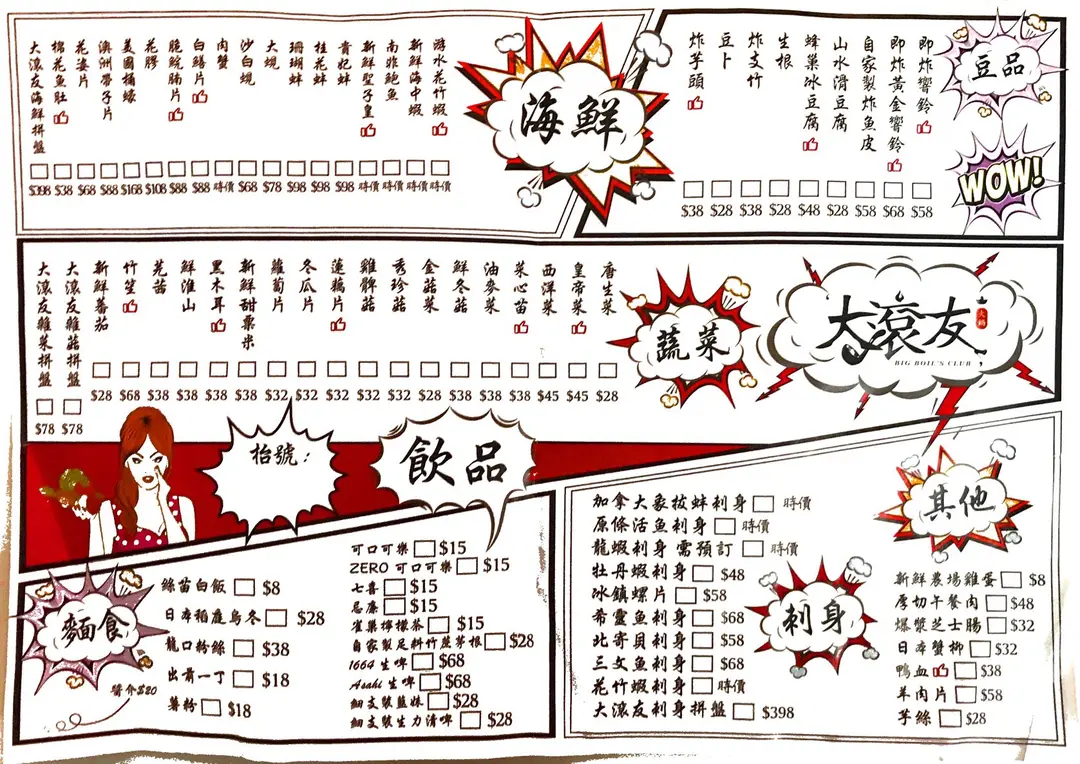 海鮮
游水花竹蝦 時價
新鮮海中蝦 時價
南非鮑魚 時價
新鮮聖子皇 時價
貴妃蚌 $98
桂花蚌 $98
珊瑚蚌 $98
大蜆 $78
沙白蜆 $68
肉蟹 時價
白鱔片 $88
脆鯇腩片 $88
花膠 $108
美國桶蠔 $168
澳洲帶子片 $88
花片 $68
棉花魚肚 $38
大滾友海鮮拼盤 $398
豆品
WOW!
即炸響鈴 $58
即炸黃金響鈴 $68
自家製炸魚皮 $58
山水滑豆腐 $28
蜂巢冰豆腐 $48
生根 $28
炸支竹 $38
豆卜 $28
炸芋頭 $38
大滾友
火鍋
BIG BOIL'S CLUB
蔬菜
唐生菜 $28
皇帝菜 $45
西洋菜 $45
菜心苗 $38
油麥菜 $38
鮮冬菇 $38
金菇菜 $32
秀珍菇 $32
雞髀菇 $32
蓮藕片 $32
冬瓜片 $32
蘿蔔片 $32
新鮮甜粟米 $38
黑木耳 $38
鮮淮山 $38
芫茜 $38
竹笙 $68
新鮮番茄 $28
大滾友雜菇拼盤 $78
大滾友雜菜拼盤 $78
枱號：
飲品
可口可樂 $15
ZERO 可口可樂 $15
七喜 $15
忌廉 $15
雀巢檸檬茶 $15
自家製足料竹蔗茅根 $28
1664 生啤 $68
Asahi 生啤 $68
細支裝藍妹 $28
細支裝生力清啤 $28
麵食
醬介$20
絲苗白飯 $8
日本稻庭烏冬 $28
龍口粉絲 $38
出前一丁 $18
薯粉 $18
刺身
加拿大象拔蚌刺身 時價
原條活魚刺身 時價
龍蝦刺身 需預訂 時價
牡丹蝦刺身 $48
冰鎮螺片 $58
希靈魚刺身 $68
北寄貝刺身 $58
三文魚刺身 $68
花竹蝦刺身 時價
大滾友刺身拼盤 $398
其他
新鮮農場雞蛋 $8
厚切午餐肉 $48
爆漿芝士腸 $32
日本蟹柳 $32
鴨血 $38
羊肉片 $58
芋絲 $28